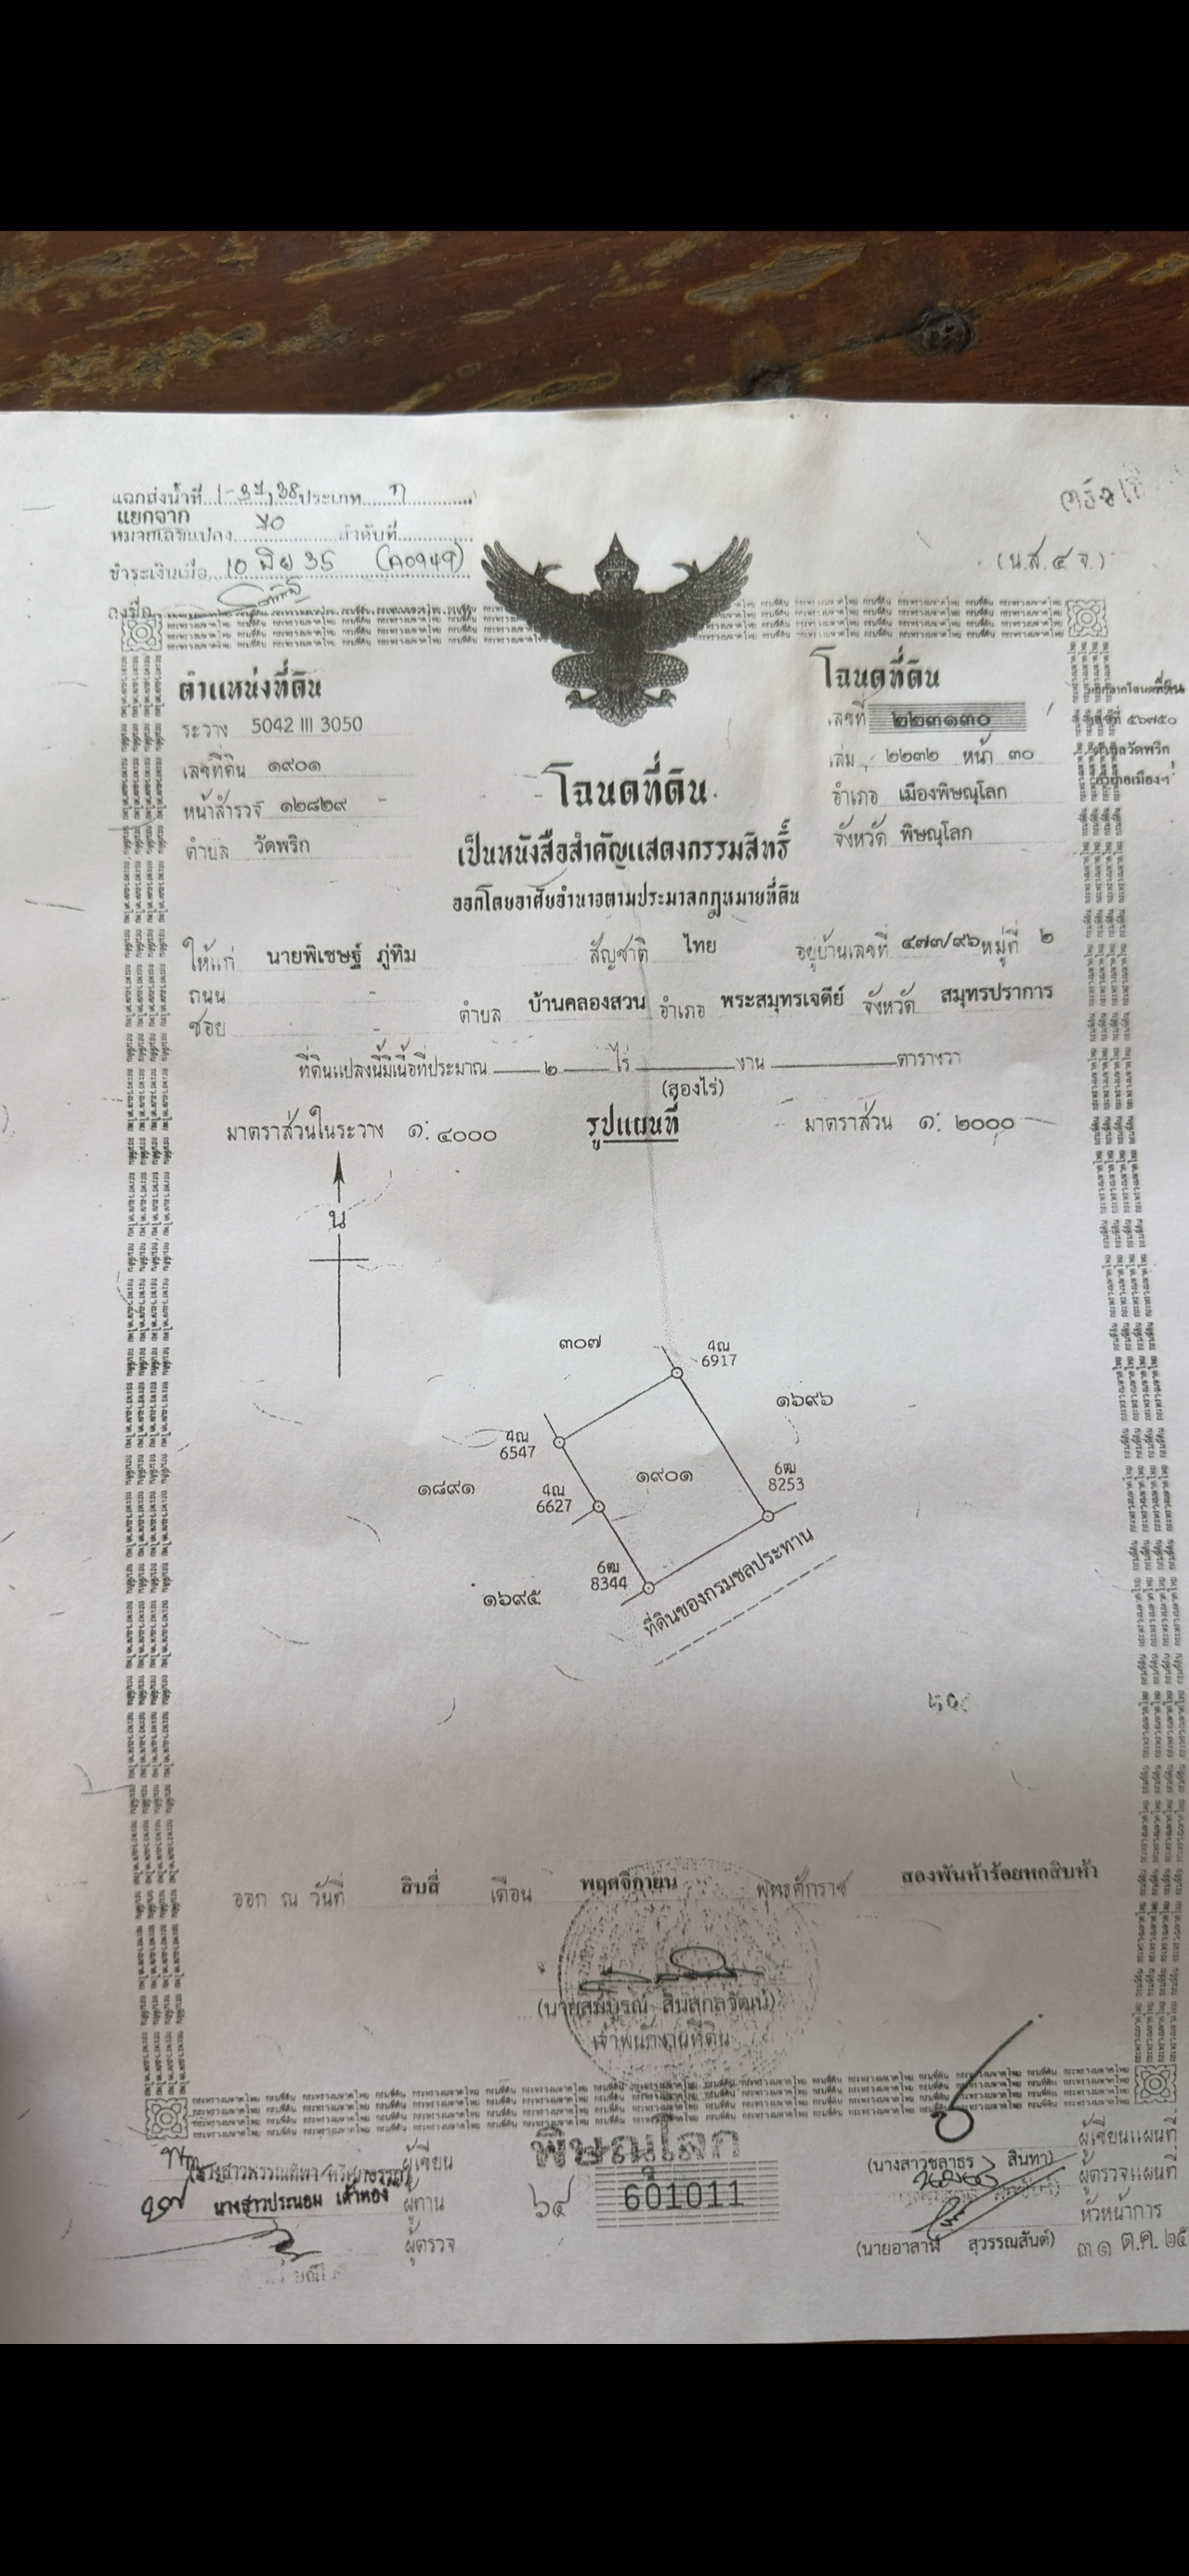 แฉกส่งน้ำที่ ประเภท ก
แยกจาก
หมายเลขแปลง ๒๐ ลำดับที่
ชำระเงินเมื่อ 10 มิย 35
ลงชื่อ
(น.ส. ๔ จ.)
ตำแหน่งที่ดิน
ระวาง 5042 III 3050
เลขที่ดิน ๑๙๐๑
หน้าสำรวจ ๑๒๘๒๙
ตำบล วัดพริก
โฉนดที่ดิน
เลขที่ ๒๒๓๑๓๐
เล่ม ๒๒๓๒ หน้า ๓๐
อำเภอ เมืองพิษณุโลก
จังหวัด พิษณุโลก
แยกจากโฉนดที่ดิน
เลขที่ ๕๖๗๕๐
ตำบลวัดพริก
อำเภอเมืองฯ
โฉนดที่ดิน
เป็นหนังสือสำคัญแสดงกรรมสิทธิ์
ออกโดยอาศัยอำนาจตามประมวลกฎหมายที่ดิน
ให้แก่ นายพิเชษฐ์ ภู่ทิม สัญชาติ ไทย อยู่บ้านเลขที่ ๔๗๓/๙๖ หมู่ที่ ๒
ถนน -
ซอย - ตำบล บ้านคลองสวน อำเภอ พระสมุทรเจดีย์ จังหวัด สมุทรปราการ
ที่ดินแปลงนี้มีเนื้อที่ประมาณ ๒ ไร่ งาน ตารางวา
(สองไร่)
มาตราส่วนในระวาง ๑: ๔๐๐๐ รูปแผนที่ มาตราส่วน ๑: ๒๐๐๐
น
๓๐๗
4ณ
6917
๑๖๙๖
4ณ
6547
๑๘๙๑
4ณ
6627
๑๙๐๑
6ฒ
8253
6ฒ
8344
๑๖๙๕
ที่ดินของกรมชลประทาน
ออก ณ วันที่ สิบสี่ เดือน พฤศจิกายน พุทธศักราช สองพันห้าร้อยหกสิบห้า
เจ้าพนักงานที่ดิน
พิษณุโลก
๖๔ 601011
ผู้เขียน
นางสาวประนอม เค้าทอง ผู้ทาน
ผู้ตรวจ
ผู้เขียนแผนที่
(นางสาวชลาธร สินทา)
ผู้ตรวจแผนที่
หัวหน้าการ
(นายอาสาฬ สุวรรณสันต์) ๓๑ ต.ค. ๒๕